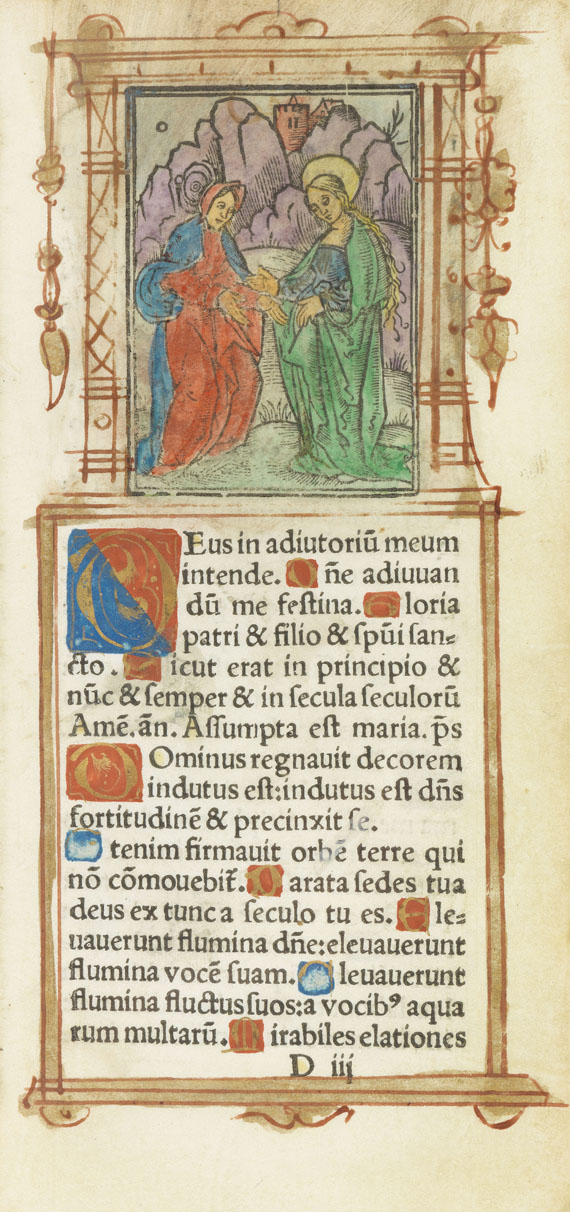 DEus in adiutoriū meum
intende. Dñe adiuuan
dū me festina. Gloria
patri & filio & spūi san⸗
cto . Sicut erat in principio &
nūc & semper & in secula seculorū
Amē. ān. Assumpta est maria. p̄s
DOminus regnauit decorem
indutus est: indutus est dn̄s
fortitudinē & precinxit se.
Etenim firmauit orbē terre qui
nō cōmouebit̄. Parata sedes tua
deus ex tunc a seculo tu es. Ele⸗
uauerunt flumina dñe: eleuauerunt
flumina vocē suam. Eleuauerunt
flumina fluctus suos: a vocibꝰ aqua
rum multarū. Mirabiles elationes
D iij